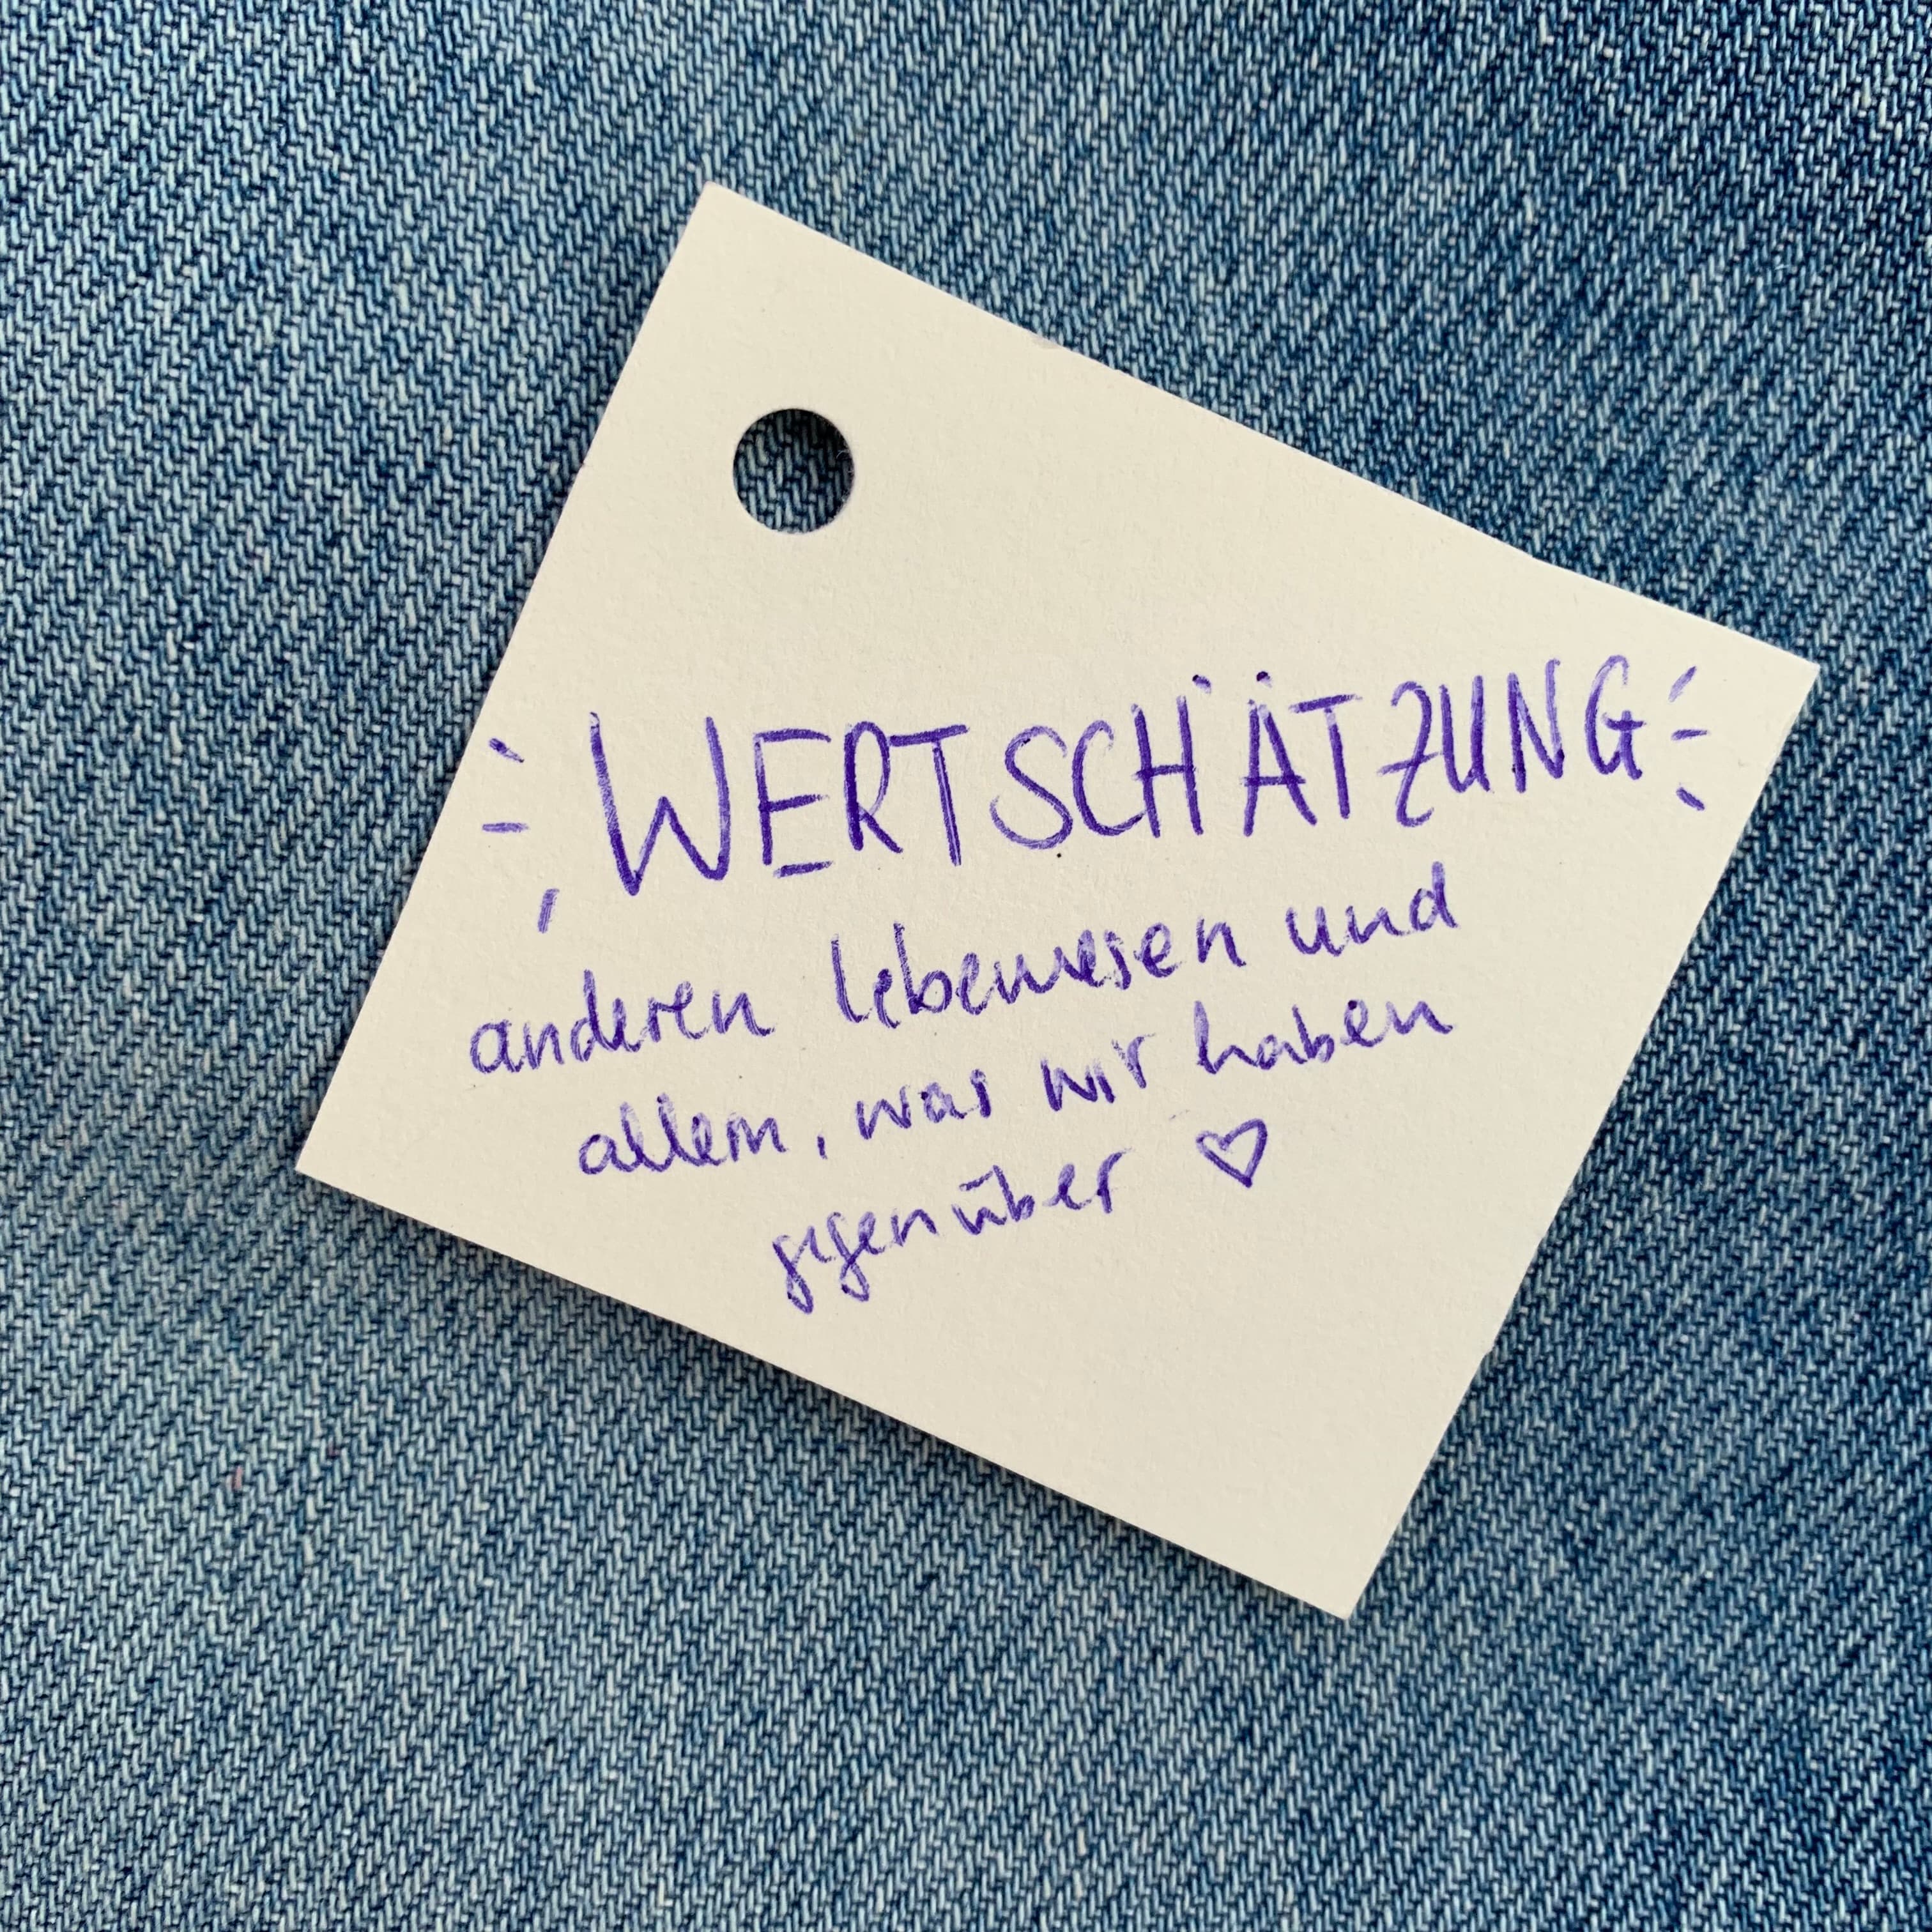 WERTSCHÄTZUNG
anderen lebewesen und
allem, was wir haben
gegenüber ♡